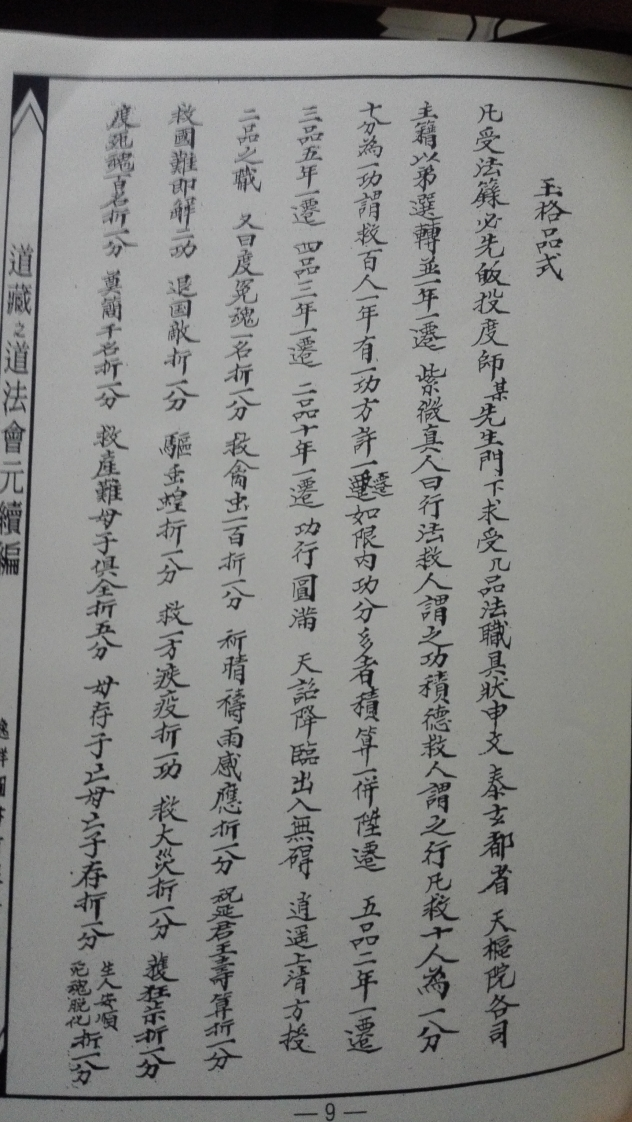 玉格品式
凡受法籙必先皈投度師某先生門下求受几品法職具狀申文 泰玄都省 天樞院各司
主籍以弟選轉並一年一遷 紫微真人曰行法救人謂之功積德救人謂之行凡救十人為一分
十分為一功謂救百人一年有一功方許一遷如限内功分多者積算一併陞遷 五品二年一遷
三品五年一遷 四品三年一遷 二品十年一遷 功行圓滿 天詔降臨出入無碍 逍遥上清方授
二品之職 又曰度冤魂一名折一分 救禽虫一百折一分 祈晴禱雨感應折一分 祝延君王壽算折一分
救國難即解二功 退国敵折一分 驅虫蝗折一分 救一方疾疫折一功 救大災折一分 獲狂祟折一分
度死魂百名折一分 奠簡千名折一分 救産難母子俱全折五分 母存子亡母亡子存折一分 生人安順死魂脱化折一分
道藏之道法會元續編
—9—